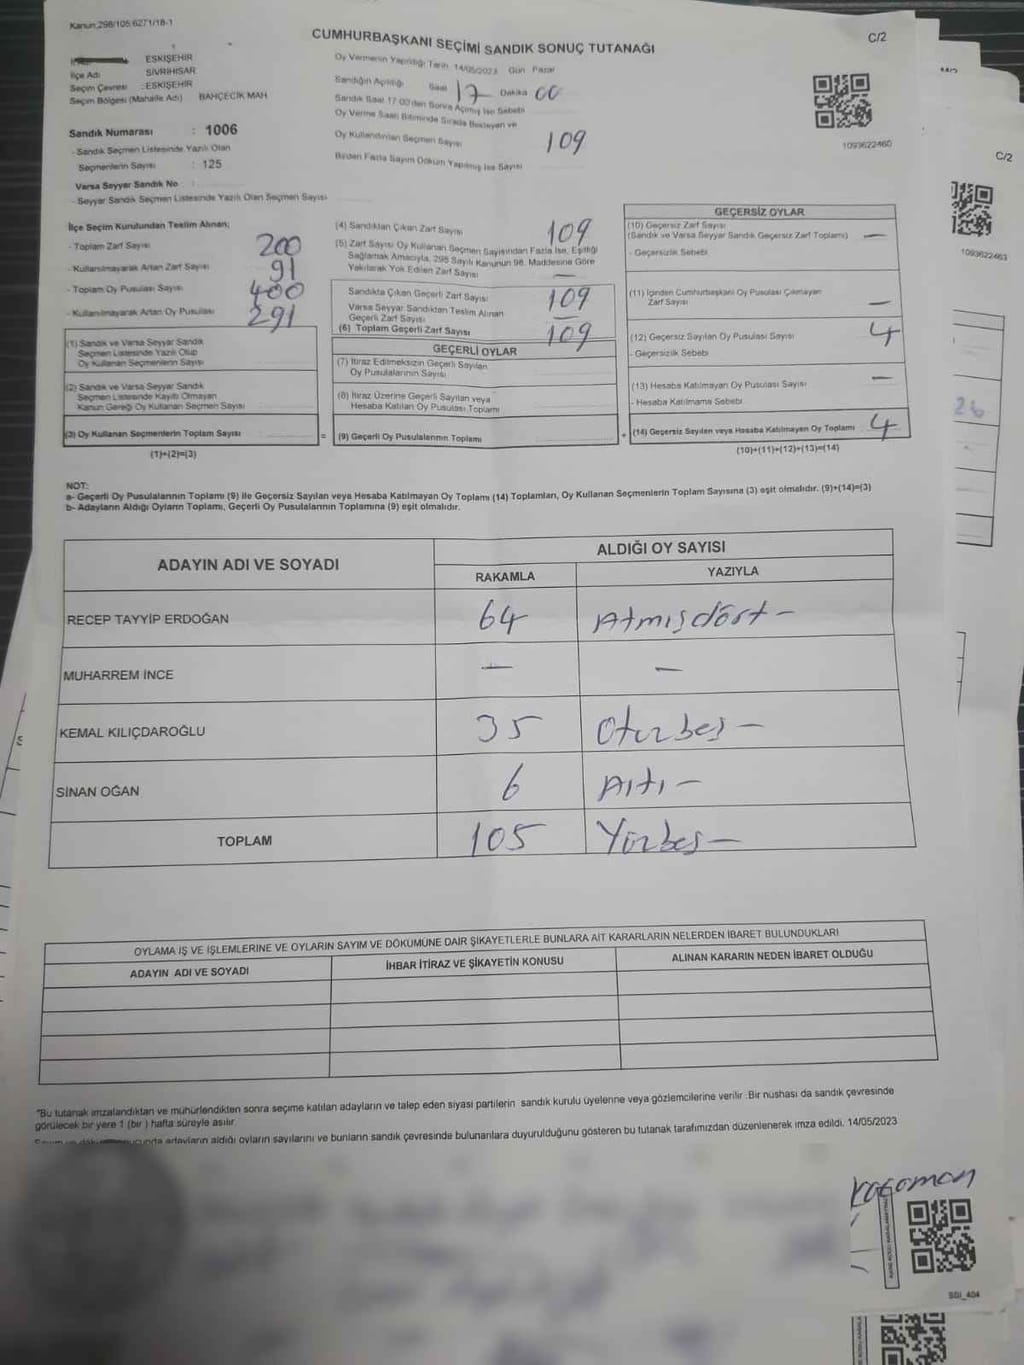 Kanun;298/105;6271/18-1
CUMHURBAŞKANI SEÇİMİ SANDIK SONUÇ TUTANAĞI
C/2
ESKİŞEHİR
İlçe Adı SİVRİHİSAR
Seçim Çevresi : ESKİŞEHİR
Seçim Bölgesi (Mahalle Adı) BAHÇECİK MAH
Sandık Numarası : 1006
- Sandık Seçmen Listesinde Yazılı Olan
Seçmenlerin Sayısı : 125
Varsa Seyyar Sandık No :
- Seyyar Sandık Seçmen Listesinde Yazılı Olan Seçmen Sayısı
Oy Vermenin Yapıldığı Tarih 14/05/2023 Gün Pazar
Sandığın Açıldığı Saat 17 Dakika 00
Sandık Saat 17:00'den Sonra Açılmış İse Sebebi
Oy Verme Saati Bitiminde Sırada Bekleyen ve
Oy Kullandırılan Seçmen Sayısı 109
Birden Fazla Sayım Döküm Yapılmış İse Sayısı
1093622460
C/2
1093622463
İlçe Seçim Kurulundan Teslim Alınan;
- Toplam Zarf Sayısı 200
- Kullanılmayarak Artan Zarf Sayısı 91
- Toplam Oy Pusulası Sayısı 400
- Kullanılmayarak Artan Oy Pusulası 291
(1) Sandık ve Varsa Seyyar Sandık
Seçmen Listesinde Yazılı Olup
Oy Kullanan Seçmenlerin Sayısı
(2) Sandık ve Varsa Seyyar Sandık
Seçmen Listesinde Kayıtlı Olmayan
Kanun Gereği Oy Kullanan Seçmen Sayısı
(3) Oy Kullanan Seçmenlerin Toplam Sayısı
(1)+(2)=(3)
(4) Sandıktan Çıkan Zarf Sayısı 109
(5) Zarf Sayısı Oy Kullanan Seçmen Sayısından Fazla İse, Eşitliği
Sağlamak Amacıyla, 298 Sayılı Kanunun 98. Maddesine Göre
Yakılarak Yok Edilen Zarf Sayısı —
Sandıkta Çıkan Geçerli Zarf Sayısı 109
Varsa Seyyar Sandıktan Teslim Alınan
Geçerli Zarf Sayısı —
(6) Toplam Geçerli Zarf Sayısı 109
GEÇERLİ OYLAR
(7) İtiraz Edilmeksizin Geçerli Sayılan
Oy Pusulalarının Sayısı
(8) İtiraz Üzerine Geçerli Sayılan veya
Hesaba Katılan Oy Pusulası Toplamı
= (9) Geçerli Oy Pusulalarının Toplamı
GEÇERSİZ OYLAR
(10) Geçersiz Zarf Sayısı
(Sandık ve Varsa Seyyar Sandık Geçersiz Zarf Toplamı) —
- Geçersizlik Sebebi
(11) İçinden Cumhurbaşkanı Oy Pusulası Çıkmayan
Zarf Sayısı —
(12) Geçersiz Sayılan Oy Pusulası Sayısı 4
- Geçersizlik Sebebi
(13) Hesaba Katılmayan Oy Pusulası Sayısı —
- Hesaba Katılmama Sebebi
+ (14) Geçersiz Sayılan veya Hesaba Katılmayan Oy Toplamı 4
(10)+(11)+(12)+(13)=(14)
26
NOT:
a- Geçerli Oy Pusulalarının Toplamı (9) ile Geçersiz Sayılan veya Hesaba Katılmayan Oy Toplamı (14) Toplamları, Oy Kullanan Seçmenlerin Toplam Sayısına (3) eşit olmalıdır. (9)+(14)=(3)
b- Adayların Aldığı Oyların Toplamı, Geçerli Oy Pusulalarının Toplamına (9) eşit olmalıdır.
ADAYIN ADI VE SOYADI
ALDIĞI OY SAYISI
RAKAMLA YAZIYLA
RECEP TAYYİP ERDOĞAN 64 Atmışdört —
MUHARREM İNCE — —
KEMAL KILIÇDAROĞLU 35 Oturbeş —
SİNAN OĞAN 6 Altı —
TOPLAM 105 Yüzbeş —
OYLAMA İŞ VE İŞLEMLERİNE VE OYLARIN SAYIM VE DÖKÜMÜNE DAİR ŞİKAYETLERLE BUNLARA AİT KARARLARIN NELERDEN İBARET BULUNDUKLARI
ADAYIN ADI VE SOYADI İHBAR İTİRAZ VE ŞİKAYETİN KONUSU ALINAN KARARIN NEDEN İBARET OLDUĞU
"Bu tutanak imzalandıktan ve mühürlendikten sonra seçime katılan adayların ve talep eden siyasi partilerin sandık kurulu üyelerine veya gözlemcilerine verilir. Bir nüshası da sandık çevresinde
görülecek bir yere 1 (bir ) hafta süreyle asılır.
adayların aldığı oyların sayılarını ve bunların sandık çevresinde bulunanlara duyurulduğunu gösteren bu tutanak tarafımızdan düzenlenerek imza edildi. 14/05/2023
Karaman
SGI_404